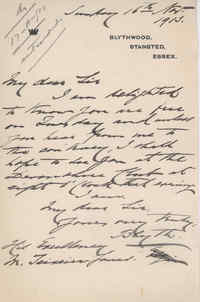 Sunday 16th Nov
1913.
BLYTHWOOD,
STANSTED,
ESSEX.
My dear Sir
I am delighted
to know you are free
on Tuesday and unless
you hear from me to
the contrary, I shall
hope to see you at the
Devonshire Club at
eight o'clock that evening
I am
My dear Sir
Yours very truly
Blyth
His Excellency
M. Teixeira Gomes